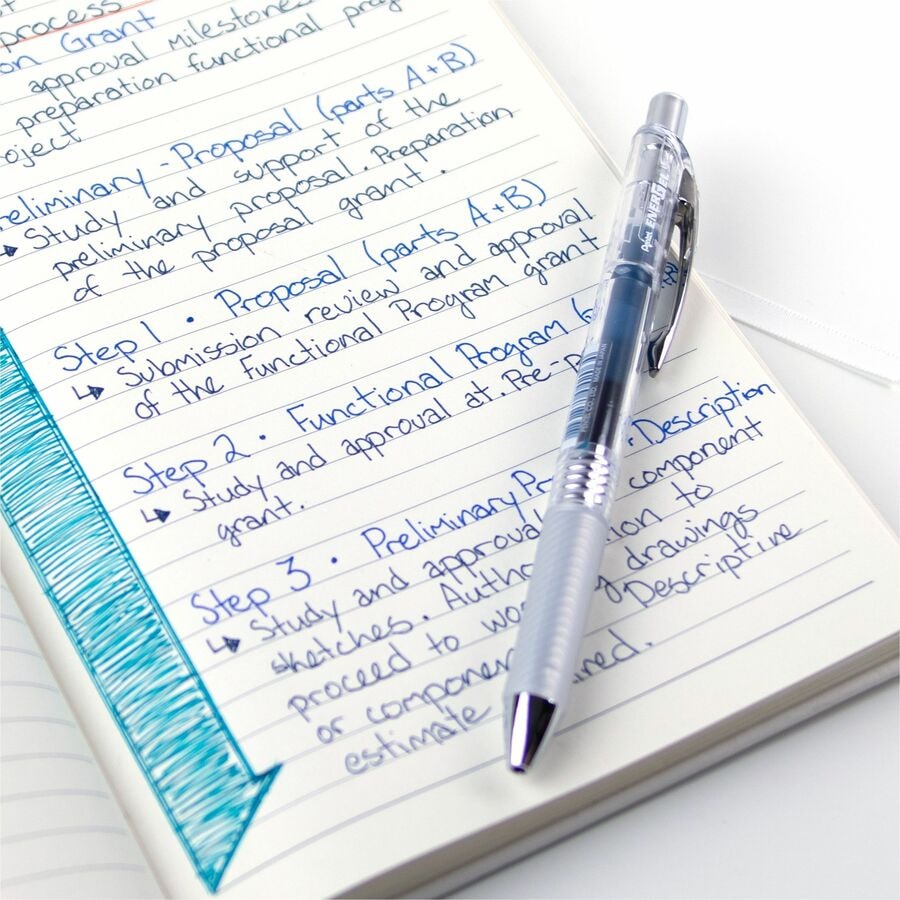 process
on Grant
approval milestones
preparation functional prog
oject
reliminary - Proposal (parts A+B)
Study and support of the
preliminary proposal. Preparation
of the proposal grant.
Step 1 • Proposal (parts A+B)
↳ Submission review and approval
of the Functional Program grant
Step 2 • Functional Program
↳ Study and approval at. Pre-p
grant.
Step 3 • Preliminary Pr Description
↳ Study and approval component
sketches. Autho ion to
proceed to wo g drawings
or componen Descriptive
estimate ired.
Pentel ENERGEL
MADE IN JAPAN